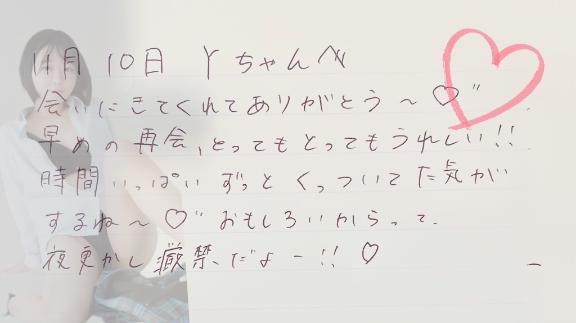 11月10日 Yちゃんへ
会いにきてくれてありがとう〜♡"
早めの再会、とってもとってもうれしい!!
時間いっぱいずっとくっついてた気が
するね〜♡" おもしろいからって、
夜更かし厳禁、だよー!! ♡